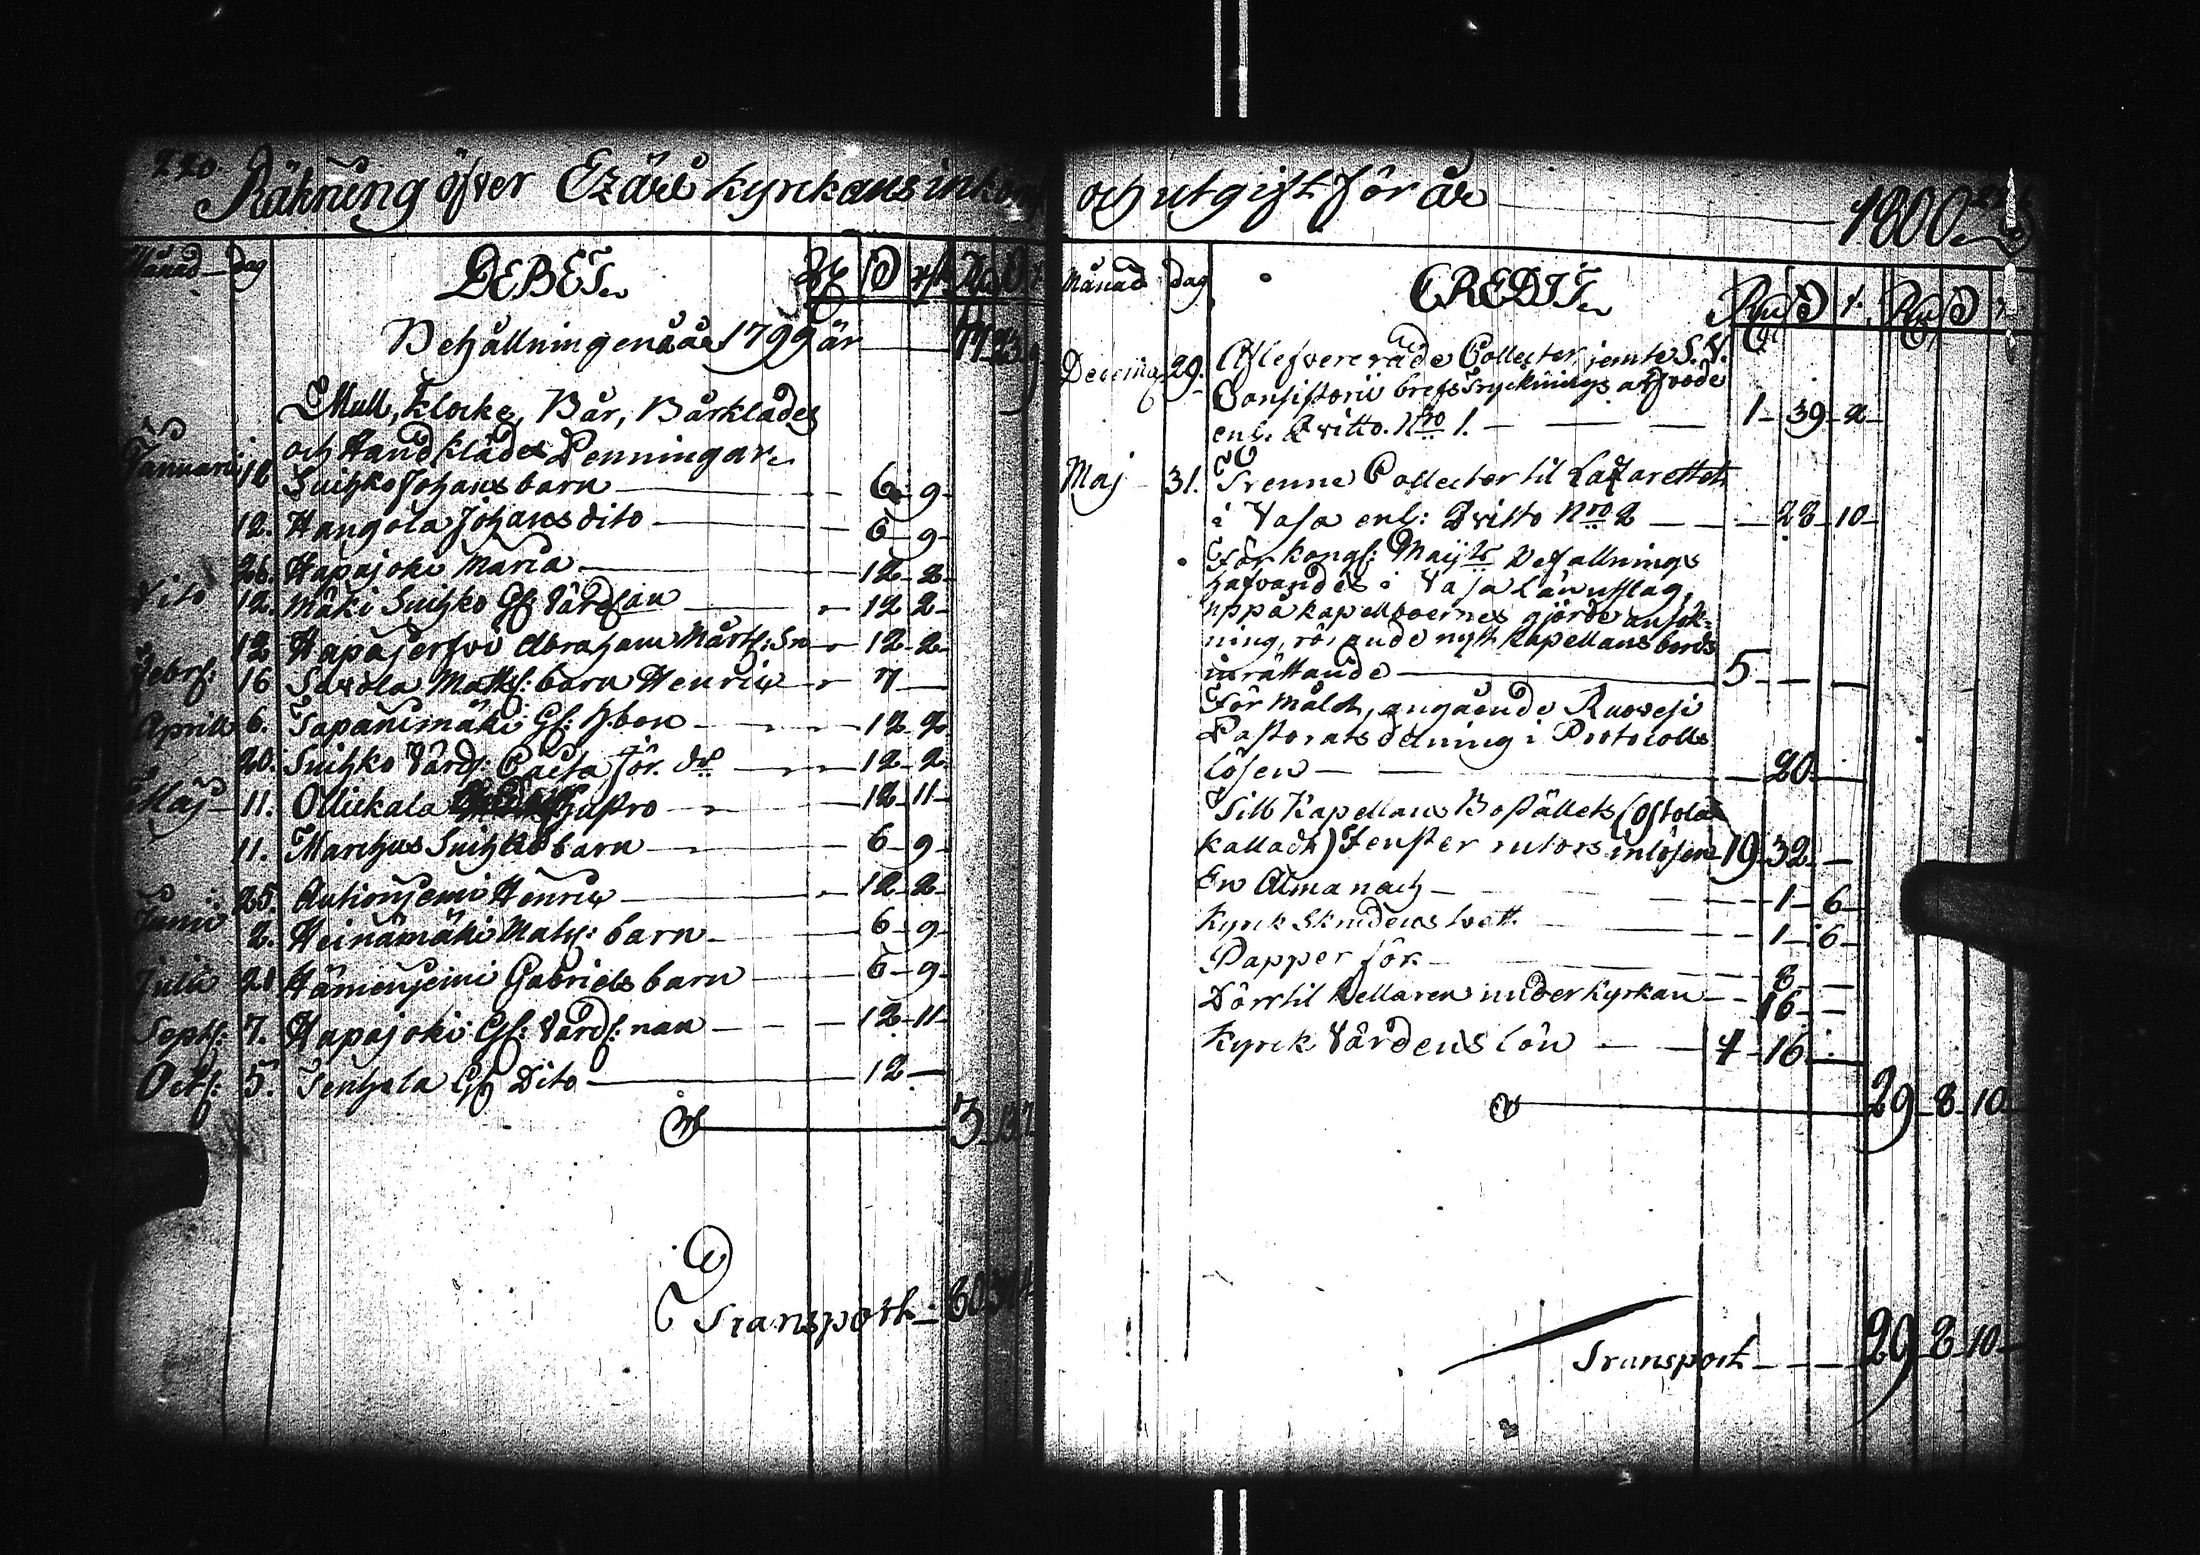 220.
Räkning öfver Ezäri kyrckans inkomst
Månad dag DEBET
Behållningen ifrå 1799 är 77
Mull, Klocke, Bår, Bårklädes
och Handklädes Penningar
Januari 12 Suihko Johans barn 6 9
12. Hangola Johans dito 6 9
26. Hapajoki Maria 12 2
Dito 12. Mäki Suihko Gl: Värd 12 2
12 Hapajerfvi Abraham Mårts: 12 2
Febr: 16 Savola Matts: barn Henric 7
April 6. Tapanimäki Gl: 12 2
20. Suihko Värd: 12 2
Maj 11. Ollickala hustro 12 11
11. Marthus Suihko barn 6 9
25. Autionjemi Henric 12 2
Junii 2. Heinämäki Mats: barn 6 9
Julii 21 Hänienjemi Gabriels barn 6 9
Sept: 7. Hapajoki Gl: Värd: nan 12 11
Oct: 5. Tenhola Gl Dito 12
3
Transport
och utgift för år 1800
Månad dag CREDIT
Decemb: 29. Aflefvererade Collecter jemte S. V.
Consistorii brefs Trycknings afgvode
enl. Qvitto. Nro 1. 1 39 2
Maj 31. Trenne Collecter til Lazarettet
i Vasa enl: Qvitto Nro 2 28 10
För Kongl: Maij:ts Befallnings
hafvandes i Vasa Län utslag,
uppå kapellboernes gjorde ansök=
ning, rörande nytt Kapellans bords
inrättande 5
För målet, angående Ruovesi
Pastorats delning i Protocolls
lösen 20
Till Kapellans Boställets (Ostola
kalladt) Fenster rutors inlösen 19 32
En Almanach 1 6
Kyrck Skrudens tvett 1 6
Papper för 8
Dörr til kellaren under kyrkan 16
Kyrck Värdens lön 4 16
29 8 10
Transport 29 8 10